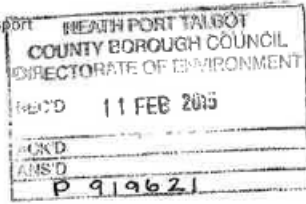 port
NEATH PORT TALBOT
COUNTY BOROUGH COUNCIL
DIRECTORATE OF ENVIRONMENT
REC'D 11 FEB 2015
ACK'D
ANS'D
P 919621